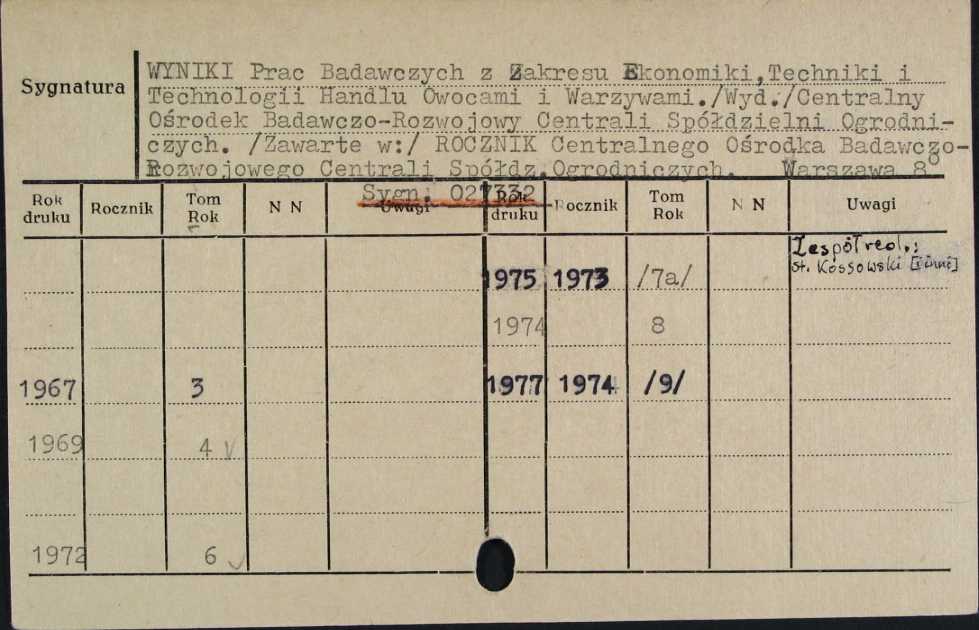 Sygnatura
WYNIKI Prac Badawczych z Zakresu Ekonomiki,Techniki i
Technologii Handlu Owocami i Warzywami./Wyd./Centralny
Ośrodek Badawczo-Rozwojowy Centrali Spółdzielni Ogrodni-
czych. /Zawarte w:/ ROCZNIK Centralnego Ośrodka Badawczo-
Rozwojowego Centrali Spółdz.Ogrodniczych. Warszawa 8°
Sygn. 027332
Rok druku Rocznik Tom Rok N N Uwagi Rok druku Rocznik Tom Rok N N Uwagi
Zespół red.:
St. Kossowski [i inni]
1975 1973 /7a/
1974 8
1967 3 1977 1974 /9/
1969 4 v
1972 6 v